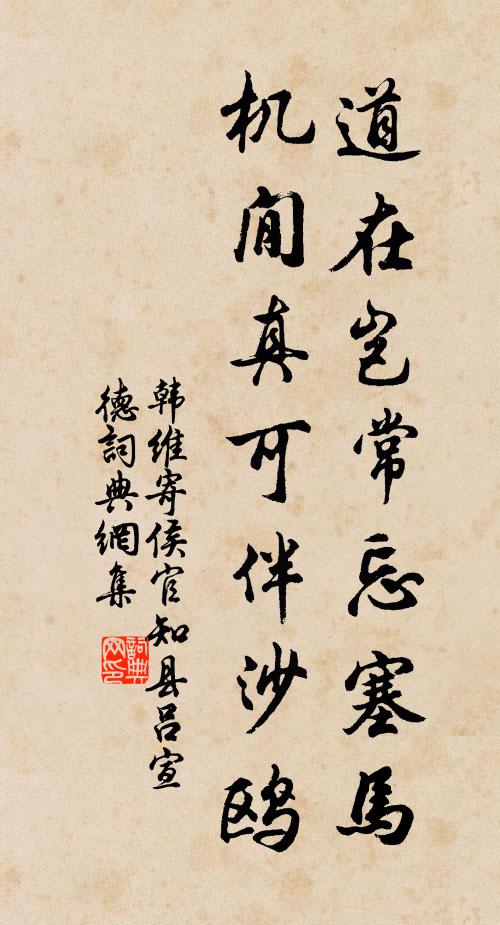 道在岂常忘塞馬
机闲真可伴沙鸥
韩维寄侯官知县吕宣
德詞典網集
詞典网印